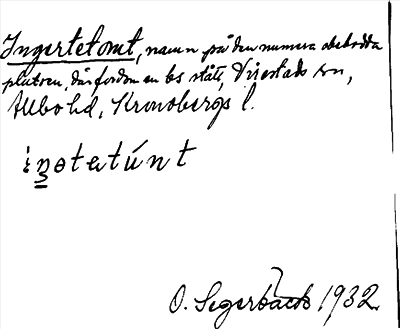 Ingertetomt, namn på den numera obebodda
platsen, där fordom en bs stått, Virestads sn,
Allbo hd, Kronobergs l.
iŋətətúnt
O. Segerbäck 1932.